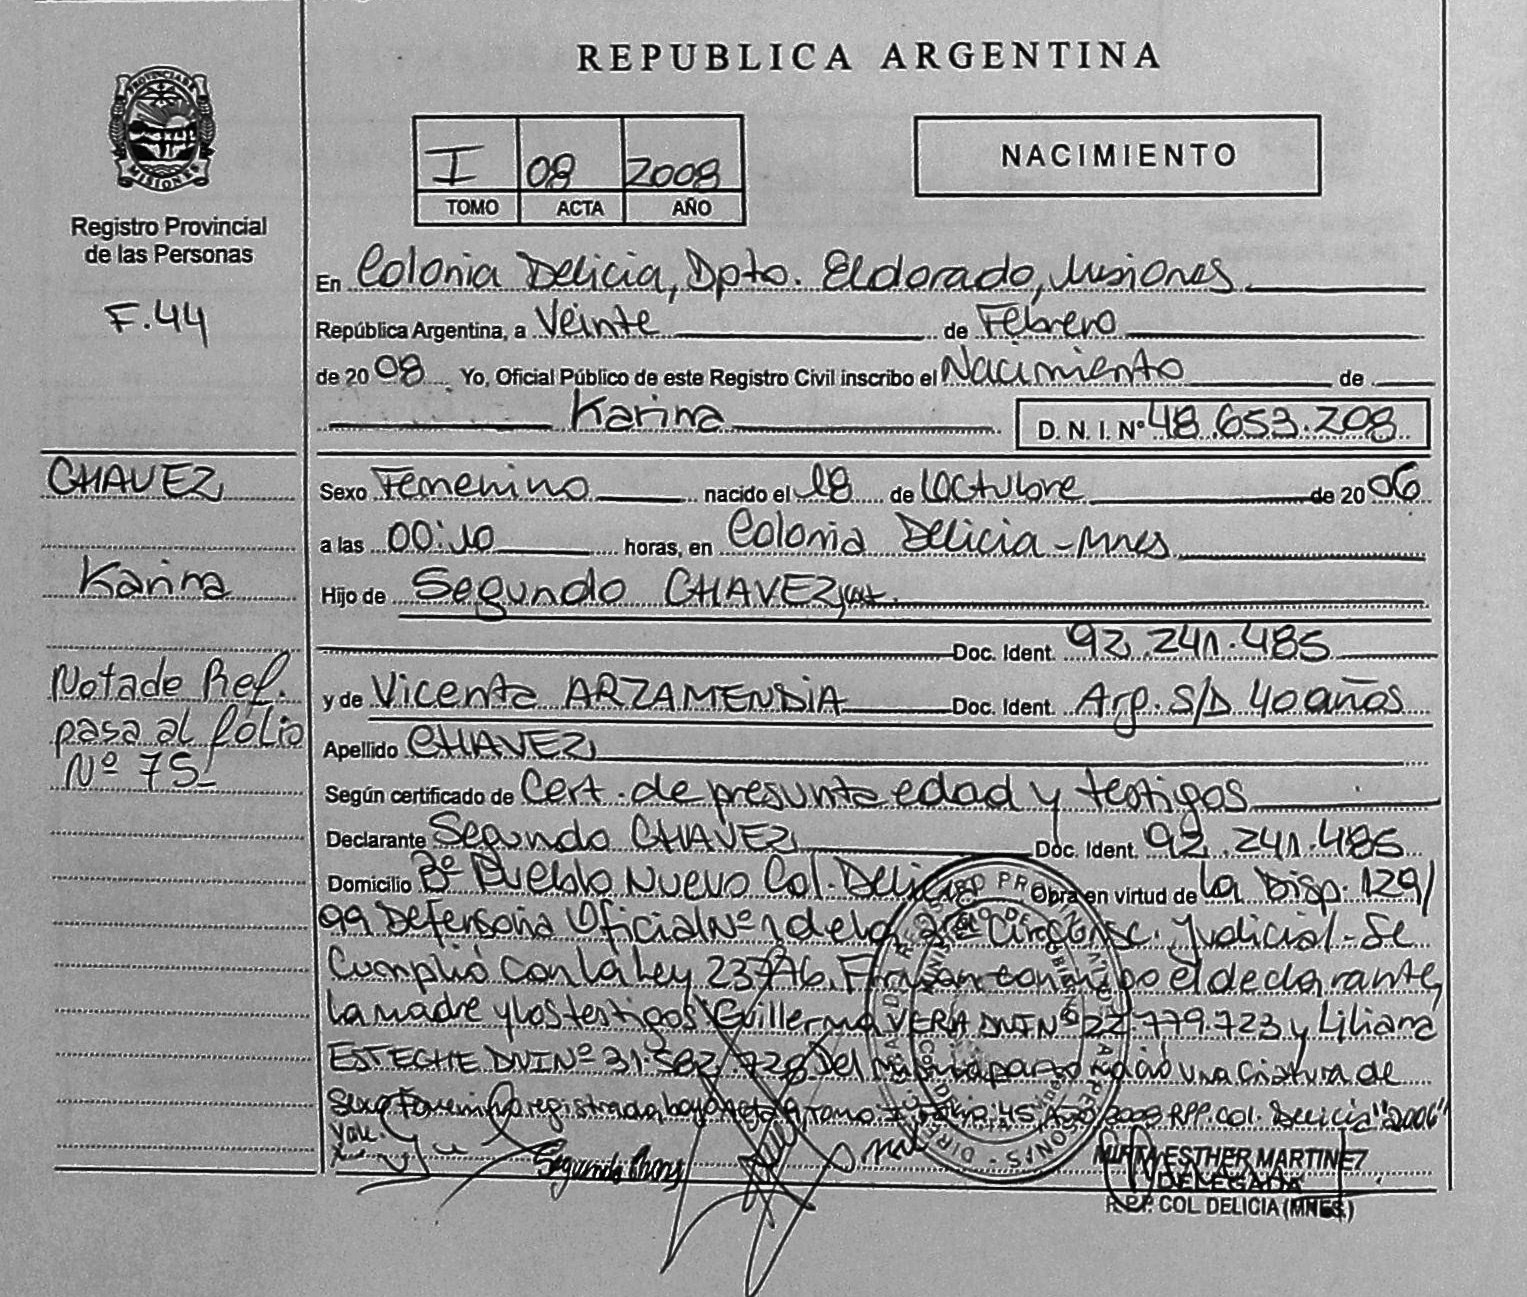 REPUBLICA ARGENTINA
PROVINCIA DE MISIONES
Registro Provincial
de las Personas
F.44
I 08 2008
TOMO ACTA AÑO
NACIMIENTO
En Colonia Delicia, Dpto. Eldorado, Misiones
República Argentina, a Veinte de Febrero
de 2008 Yo, Oficial Público de este Registro Civil inscribo el Nacimiento de
Karina D. N. I. Nº 48.653.208
CHAVEZ
Sexo Femenino nacido el 18 de Octubre de 2006
a las 00:10 horas, en Colonia Delicia - Mnes
Karina
Hijo de Segundo CHAVEZ
Doc. Ident. 92.241.485
Nota de Ref.
pasa al folio
Nº 75
y de Vicenta ARZAMENDIA Doc. Ident. Arg. S/D 40 años
Apellido CHAVEZ
Según certificado de Cert. de presunta edad y testigos
Declarante Segundo CHAVEZ Doc. Ident. 92.241.485
Domicilio Bº Pueblo Nuevo Col. Delicia Obra en virtud de la Disp. 129/
99 Defensoria Oficial Nº 1 de la Circunsc. Judicial - Se
Cumplió con la Ley 23776. Firman conmigo el declarante,
la madre y los testigos Guillerma VERA DNI Nº 22.779.723 y Liliana
ESTECHE DNI Nº 31.582.728 Del mismo parto nació una Criatura de
Sexo Femenino registrada bajo Acta 9 Tomo I Folio 45 Año 2008 RPP. Col. Delicia "2006"
Vale.
Segundo Chavez
MIRTA ESTHER MARTINEZ
DELEGADA
R.P.P. COL DELICIA (MNES.)